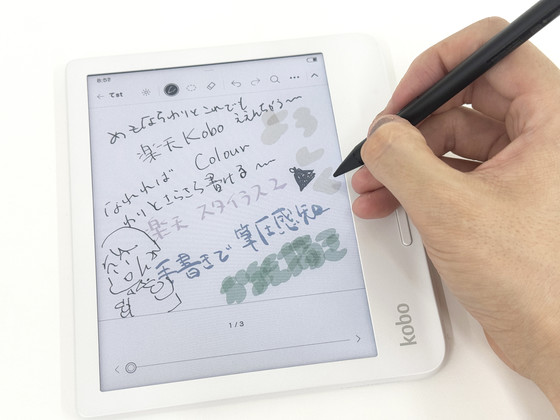 ← てst
めもはらわりとこれでも
ええんちゃう〜
楽天Kobo
Colour
なれれば
わりとさらさら書ける〜
楽天 スタイラス2
手書きで 筆圧感知
1/3
kobo